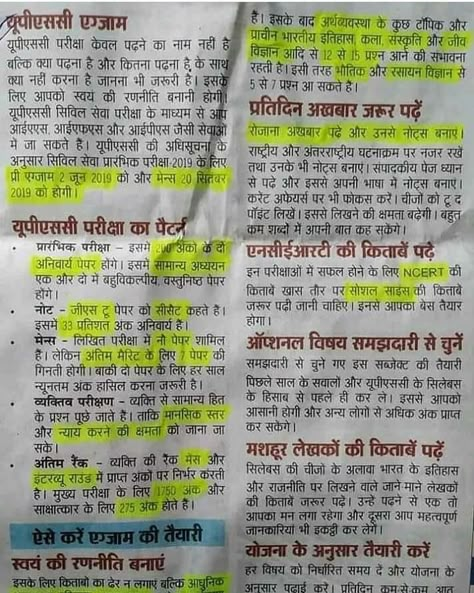 यूपीएससी एग्जाम
यूपीएससी परीक्षा केवल पढ़ने का नाम नहीं है
बल्कि क्या पढ़ना है और कितना पढ़ना है के साथ
क्या नहीं करना है जानना भी जरूरी है। इसके
लिए आपको स्वयं की रणनीति बनानी होगी।
यूपीएससी सिविल सेवा परीक्षा के माध्यम से आप
आईएएस, आईएफएस और आईपीएस जैसी सेवाओं
में जा सकते है। यूपीएससी की अधिसूचना के
अनुसार सिविल सेवा प्रारंभिक परीक्षा-2019 के लिए
प्री एग्जाम 2 जून 2019 को और मेन्स 20 सितंबर
2019 को होगी।
यूपीएससी परीक्षा का पैटर्न
• प्रारंभिक परीक्षा – इसमें 200 अंकों के दो
अनिवार्य पेपर होंगे। इसमें सामान्य अध्ययन
एक और दो में बहुविकल्पीय, वस्तुनिष्ठ पेपर
होंगे।
• नोट – जीएस टू पेपर को सीसैट कहते है।
इसमें 33 प्रतिशत अंक अनिवार्य है।
• मेन्स – लिखित परीक्षा में नौ पेपर शामिल
हैं। लेकिन अंतिम मैरिट के लिए 7 पेपर की
गिनती होगी। बाकी दो पेपर के लिए हर साल
न्यूनतम अंक हासिल करना जरूरी है।
• व्यक्तित्व परीक्षण – व्यक्ति से सामान्य हित
के प्रश्न पूछे जाते है। ताकि मानसिक स्तर
और न्याय करने की क्षमता को जाना जा
सके।
• अंतिम रैंक – व्यक्ति की रैंक मेंस और
इंटरव्यू राउंड में प्राप्त अंकों पर निर्भर करती
है। मुख्य परीक्षा के लिए 1750 अंक और
साक्षात्कार के लिए 275 अंक होते है।
ऐसे करें एग्जाम की तैयारी
स्वयं की रणनीति बनाएं
इसके लिए किताबो का ढेर न लगाएं बल्कि आधुनिक
है। इसके बाद अर्थव्यवस्था के कुछ टॉपिक और
प्राचीन भारतीय इतिहास, कला, संस्कृति और जीव
विज्ञान आदि से 12 से 15 प्रश्न आने की संभावना
रहती है। इसी तरह भौतिक और रसायन विज्ञान से
5 से 7 प्रश्न आ सकते है।
प्रतिदिन अखबार जरूर पढ़ें
रोजाना अखबार पढ़े और उनसे नोट्स बनाएं।
राष्ट्रीय और अंतरराष्ट्रीय घटनाक्रम पर नजर रखें
तथा उनके भी नोट्स बनाएं। संपादकीय पेज ध्यान
से पढ़े और इससे अपनी भाषा में नोट्स बनाएं।
करेंट अफेयर्स पर भी फोकस करें। चीजों को टू द
पॉइंट लिखें। इससे लिखने की क्षमता बढ़ेगी। बहुत
कम शब्दों में अपनी बात कह सकेंगे।
एनसीईआरटी की किताबें पढ़ें
इन परीक्षाओं में सफल होने के लिए NCERT की
किताबें खास तौर पर सोशल साइंस की किताबें
जरूर पढ़ी जानी चाहिए। इनसे आपका बेस तैयार
होगा।
ऑप्शनल विषय समझदारी से चुनें
समझदारी से चुने गए इस सब्जेक्ट की तैयारी
पिछले साल के सवालों और यूपीएससी के सिलेबस
के हिसाब से पहले ही कर ले। इससे आपको
आसानी होगी और अन्य लोगों से अधिक अंक प्राप्त
कर सकेंगे।
मशहूर लेखकों की किताबें पढ़ें
सिलेबस की चीजों के अलावा भारत के इतिहास
और राजनीति पर लिखने वाले जाने माने लेखकों
की किताबें जरूर पढ़े। उन्हें पढ़ने से एक तो
आपका मन लगा रहेगा और दूसरा आप महत्वपूर्ण
जानकारियां भी इकट्ठी कर लेंगे।
योजना के अनुसार तैयारी करें
हर विषय को निर्धारित समय दें और योजना के
अनुसार पढ़ाई करें। प्रतिदिन कम-से-कम आठ